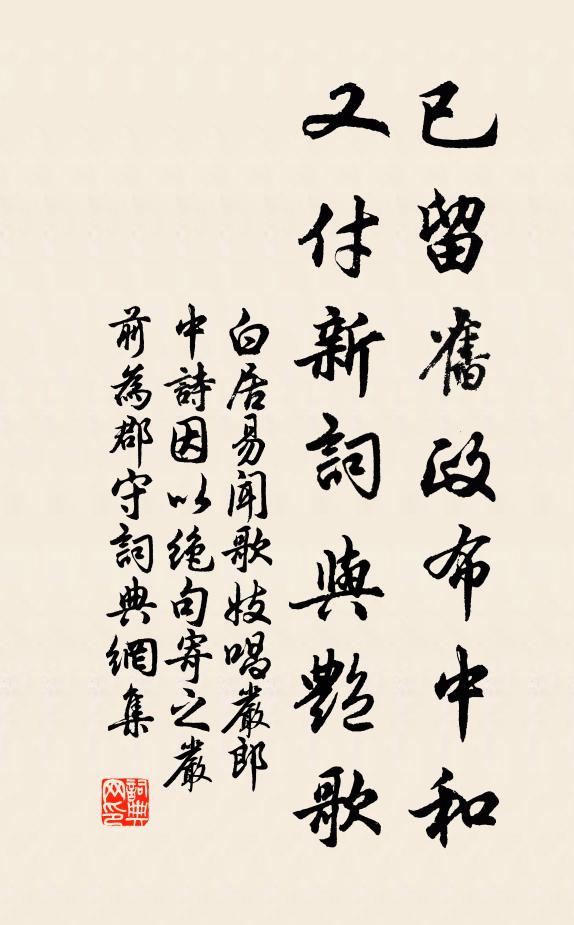 已留舊政布中和
又付新詞與艷歌
白居易聞歌妓唱嚴郎
中詩因以絶句寄之嚴
前為郡守詞典網集
詞典
网印